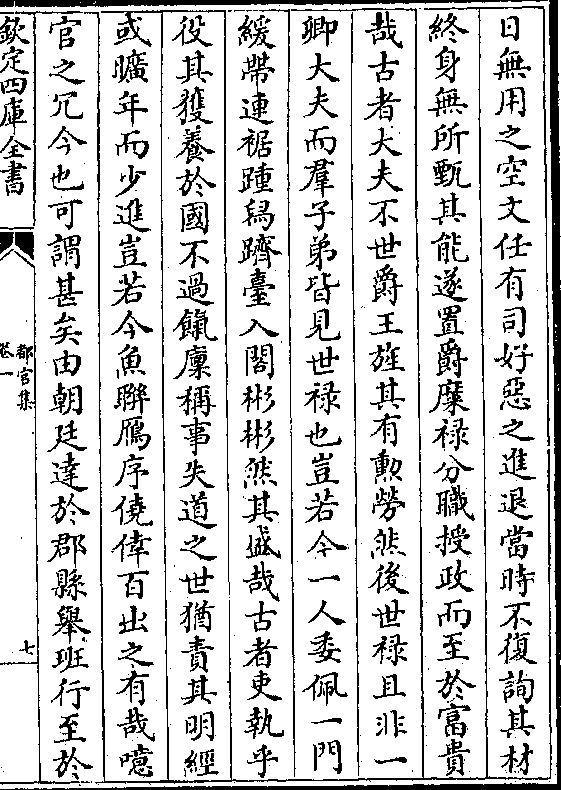 日無用之空文任有司好惡之進退當時不復詢其材
終身無所甄其能遂置爵糜禄分職授政而至於富貴
哉古者大夫不世爵王旌其有勲勞然後世禄且非一
卿大夫而羣子弟皆見世禄也豈若今一人委佩一門
緩帶連裾踵舄躋臺入閣彬彬然其盛哉古者吏執乎
役其獲養於國不過餼廪稱事失道之世猶責其明經
或曠年而少進豈若今魚聨鴈序僥倖百出之有哉噫
官之冗今也可謂甚矣由朝廷達於郡縣舉班行至於
欽定四庫全書
都官集
卷一
七